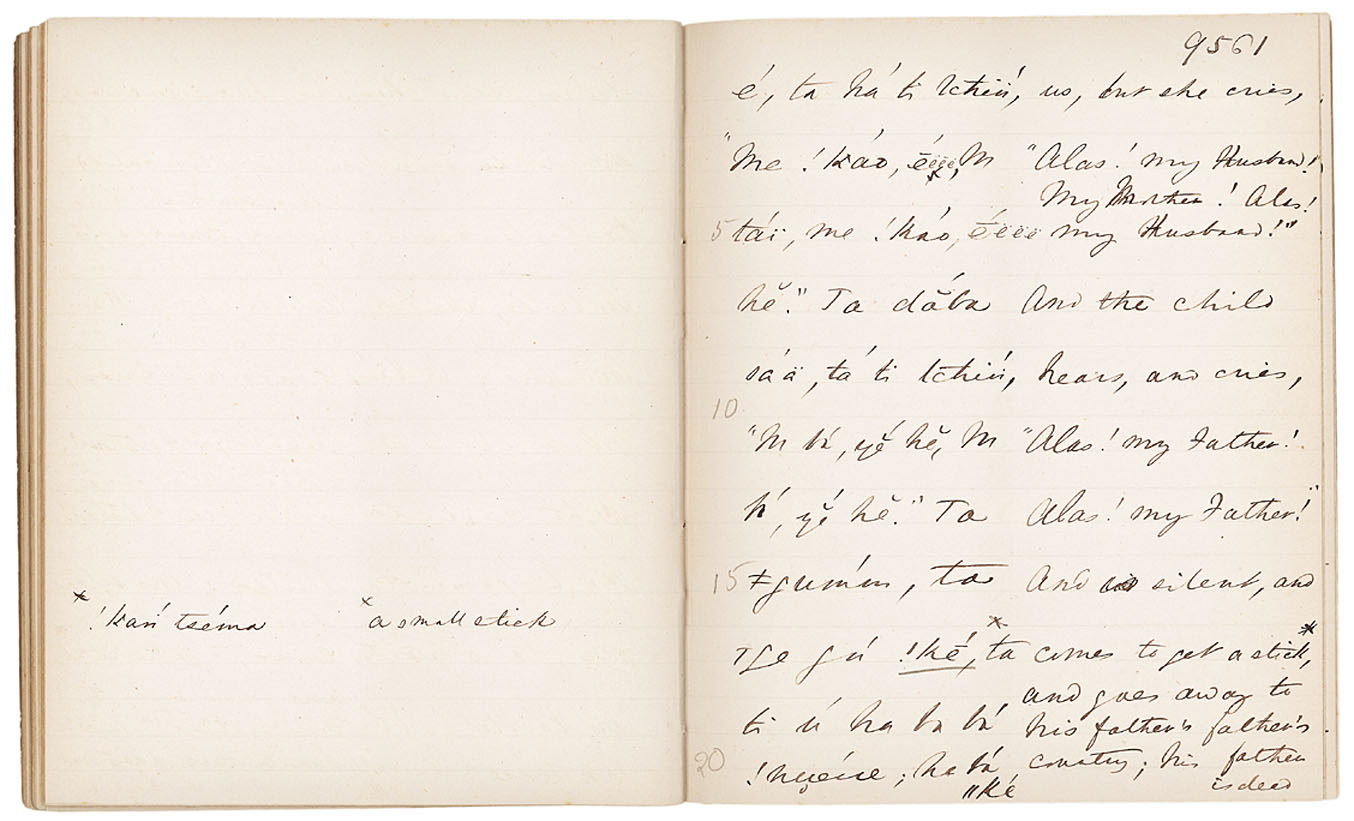 × !kań tséma × a small stick
9561
é, ta há ti ltchiń, us, but she cries,
"Me ! káo, éëëë, M "Alas! my Husband!
My Mother! Alas!
5 táï, me !káo, éëëë my Husband!"
hĕ." Ta dăba And the child
sáä, tá ti ltchiń, hears, and cries,
10
"M bá, yĕ́ hĕ, M "Alas! my Father!
b́, yĕ́ hĕ." Ta Alas! my Father!"
15 ǂgumḿ, ta And is silent, and
ge gú !ké,× ta comes to get a stick,×
and goes away to
ti ú ha ba bá his father's father's
20 ; ha bá country; his father
ǁké is dead